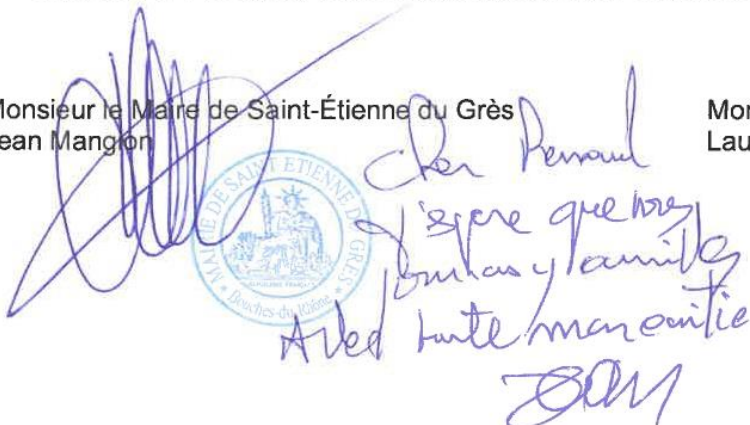 Monsieur le Maire de Saint-Étienne du Grès
Jean Mangion
Mon
Lau
MAIRIE DE SAINT ETIENNE DU GRÈS
RÉPUBLIQUE FRANÇAISE
Bouches-du-Rhône
Cher Renaud
J'espère que vous
pourrez y
Avec toute mon amitié
Jean